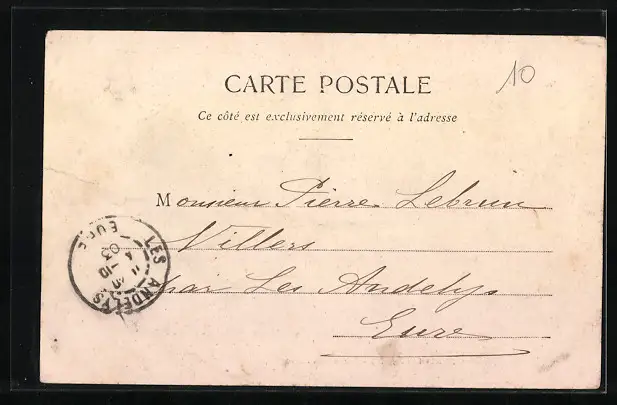 10
CARTE POSTALE
Ce côté est exclusivement réservé à l'adresse
Monsieur Pierre Lebrun
Villers
par Les Andelys
Eure
LES ANDELYS
EURE